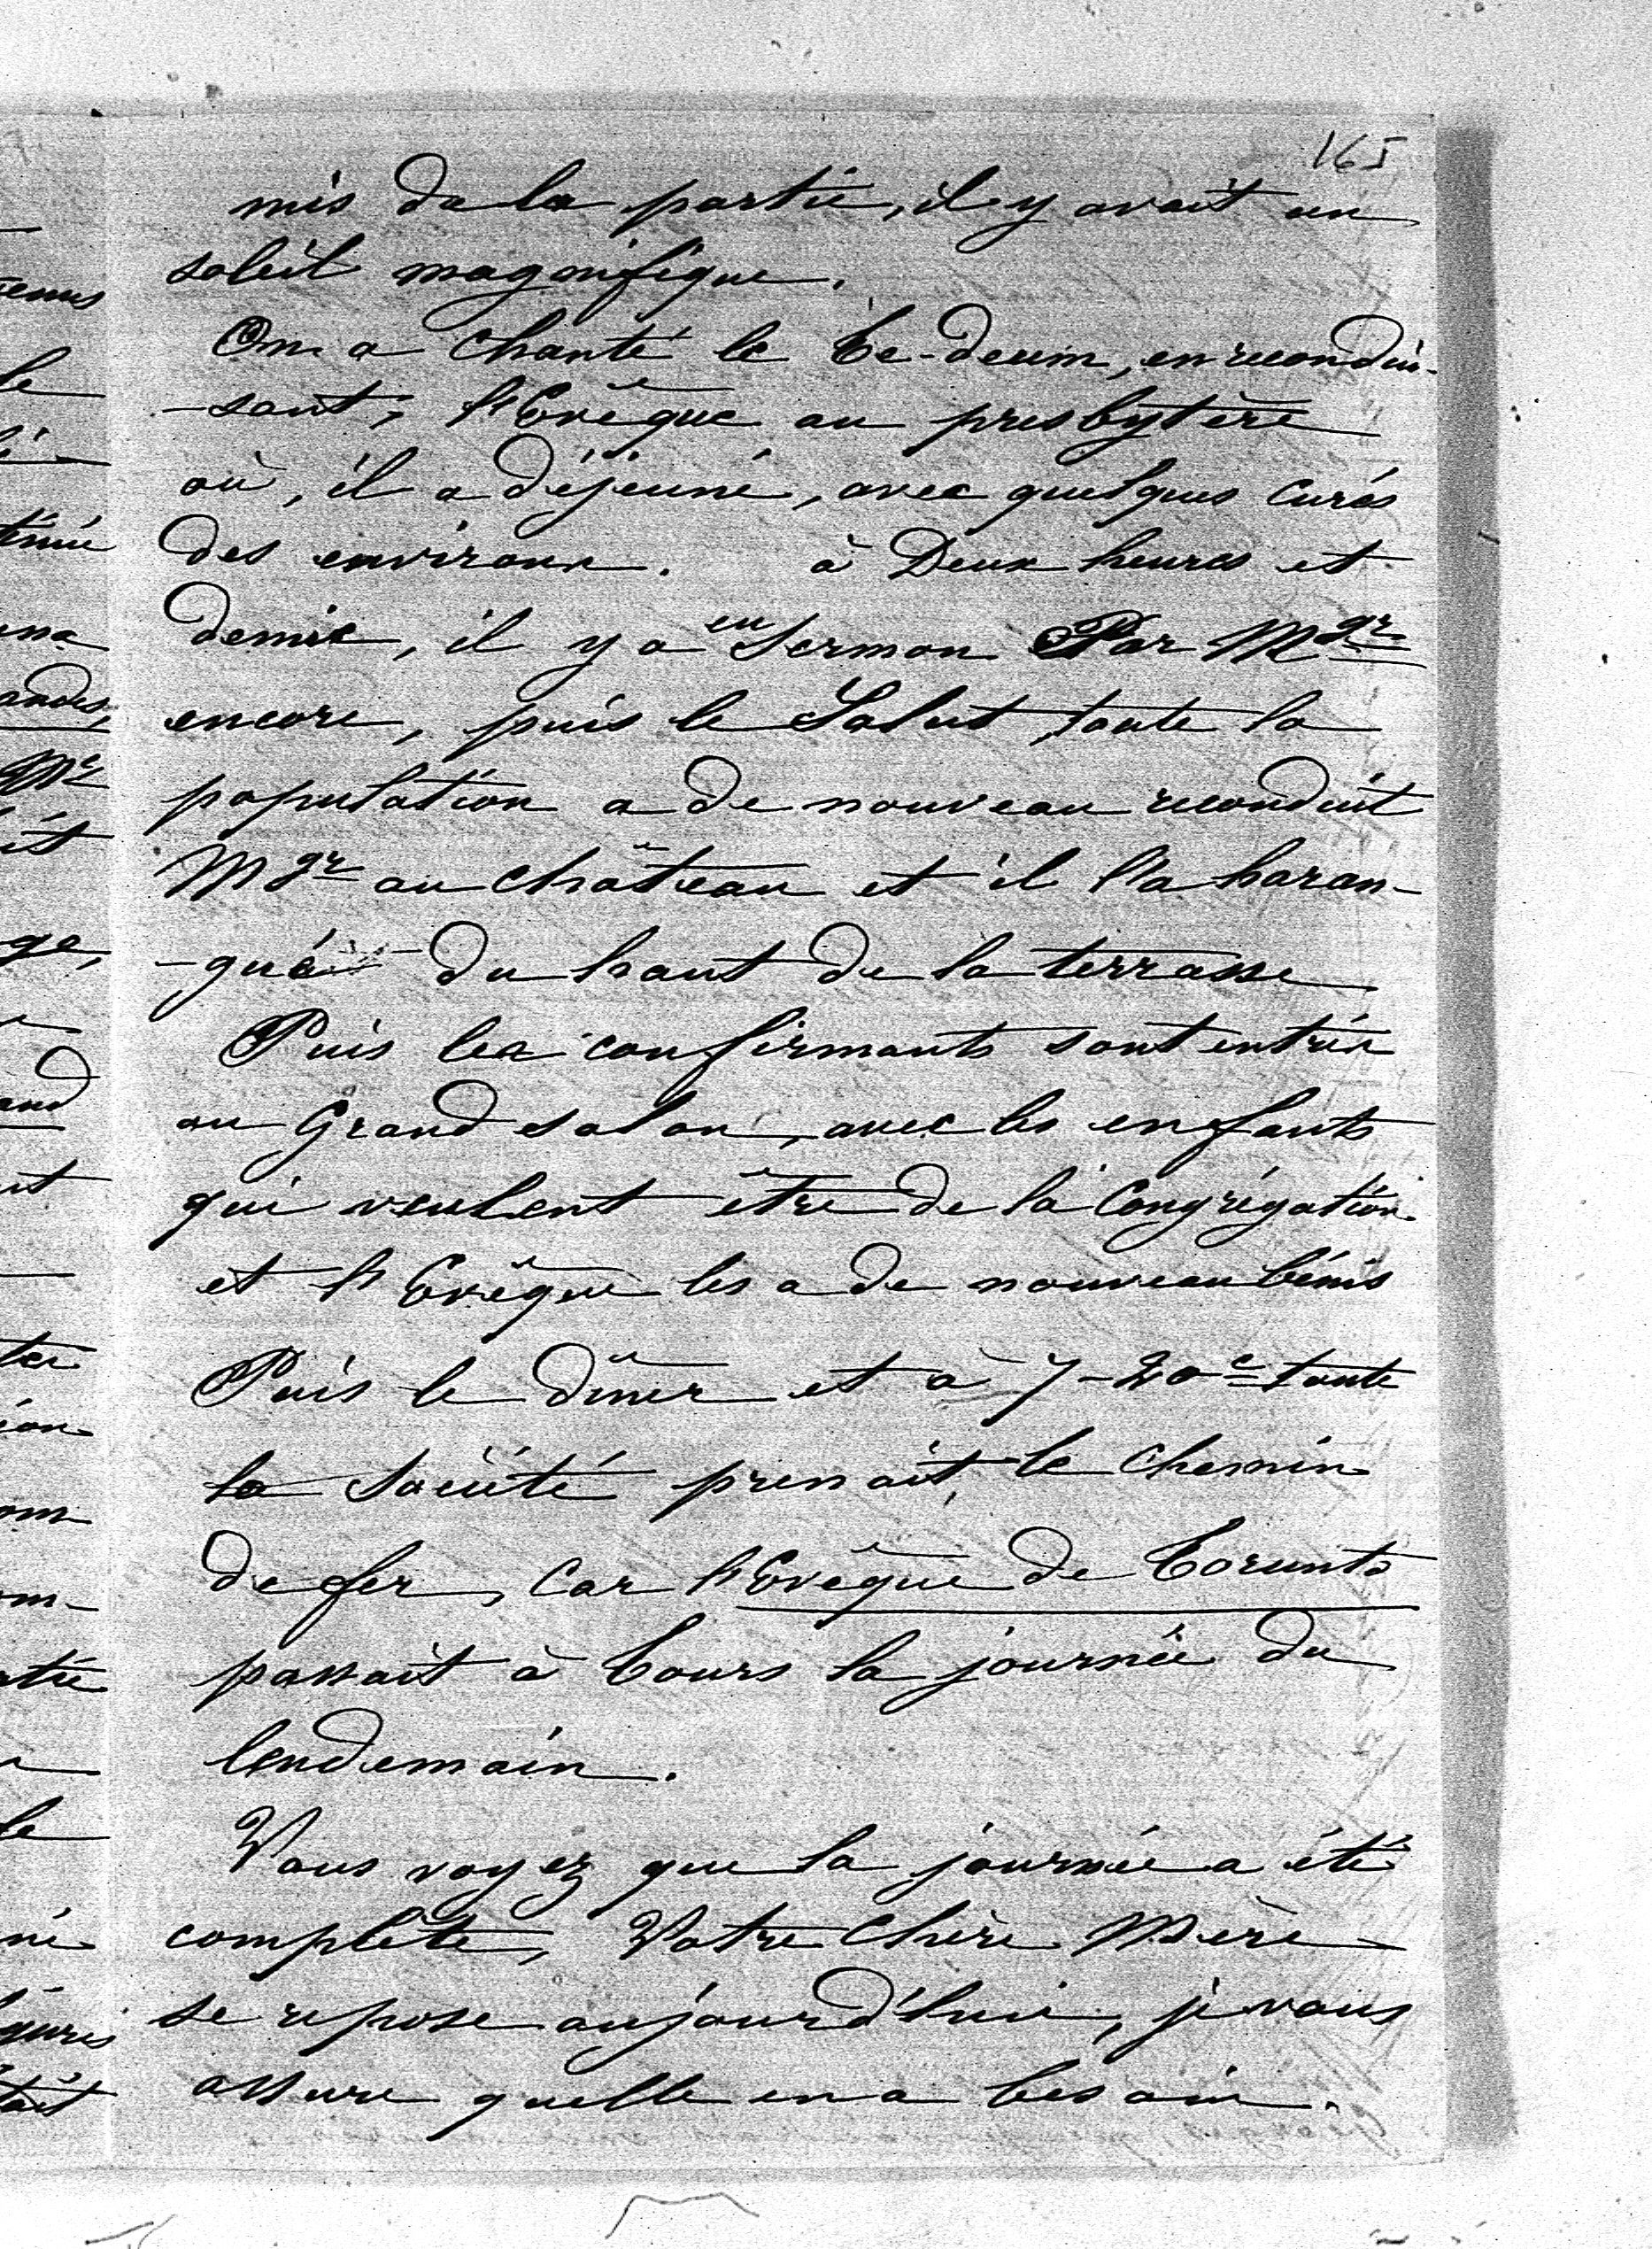 165
mis de la partie, il y avait un
soleil magnifique.
On a chanté le Te-deum, en recondui-
-sant, l'Evêque au presbytère
où, il a déjeuné, avec quelques curés
des environs. à Deux heures et
demie, il y a eu Sermon Par Mgr
encore, puis le Salut, toute la
population a de nouveau reconduit
Mgr au château et il l'a haran-
-gué du haut de la terrasse
Puis les confirmants sont entrés
au Grand salon, avec les enfants
qui veulent être de la Congrégation
et l'Evêque les a de nouveau bénis
Puis le dîner et à 7-20e toute
la Société prenait, le chemin
de fer, car l'Evêque de Torunto
passait à Tours la journée du
lendemain.
Vous voyez que la journée a été
complête, Votre chère Mère
se repose aujourd'hui, je vous
assure quelle en a besoin.